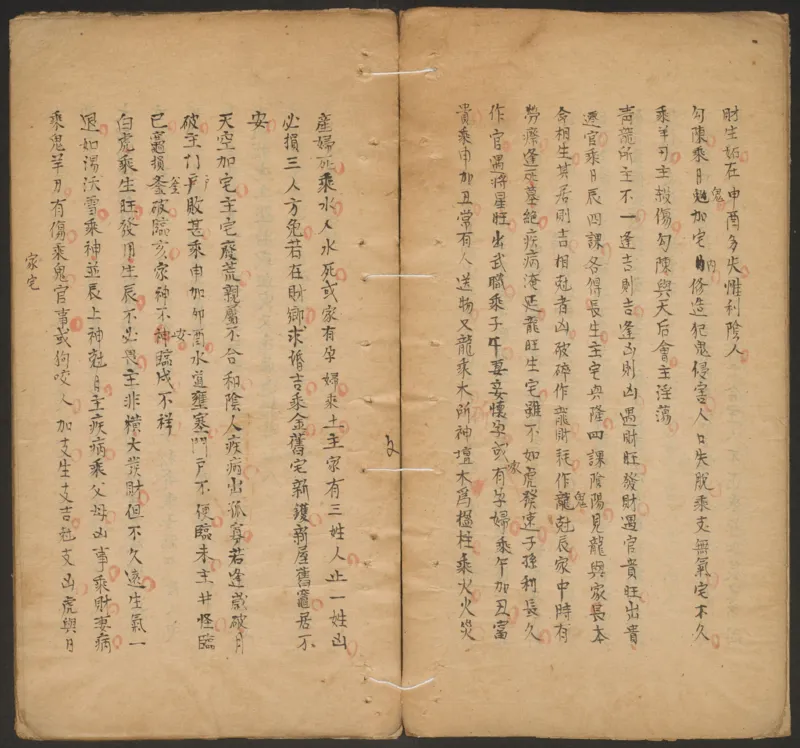 財生妬在申酉多失惟利陰人
勾陳乘日鬼尅加宅內修造犯鬼侵害人口失脫乘支無氣宅不久
乘羊刃主殺傷勾陳與天后會主淫蕩
青龍所主不一逢吉則吉逢凶則凶遇財旺發財遇官貴旺出貴
遷官乘日辰四課各得長生主宅興隆四課陰陽見龍與家長本
命相生其居則吉相尅者凶破碎作龍財耗作龍鬼尅辰家中時有
勞瘵逢死墓絕疾病淹延龍旺生宅雖不如虎發速子孫利長久
作官遇將星旺出武職乘子午妻妾懷孕或家有孕婦乘午加丑富
貴乘申加丑常有人送物又龍乘木所神壇木為楹柱乘火火災
產婦死乘水人水死或家有孕婦乘土主家有三姓人止一姓凶
必損三人方免若在財鄉求婚吉乘金舊宅新鑊新屋舊竈居不
安
天空加宅主宅廢荒親屬不合和陰人疾病出孤寡若逢歲破月
破主打戶敗甚乘申加卯酉水道壅塞門戶不便臨未主井怪臨
巳竈損釜破臨亥家神不安臨戌不祥
白虎乘生旺發用生辰不必畏主非橫大發財但不久遠生氣一
退如湯沃雪乘神並辰上神尅日主疾病乘父母凶事乘財妻病
乘鬼羊刃有傷乘鬼官事或狗咬人加支生支吉尅支凶虎與日
家宅